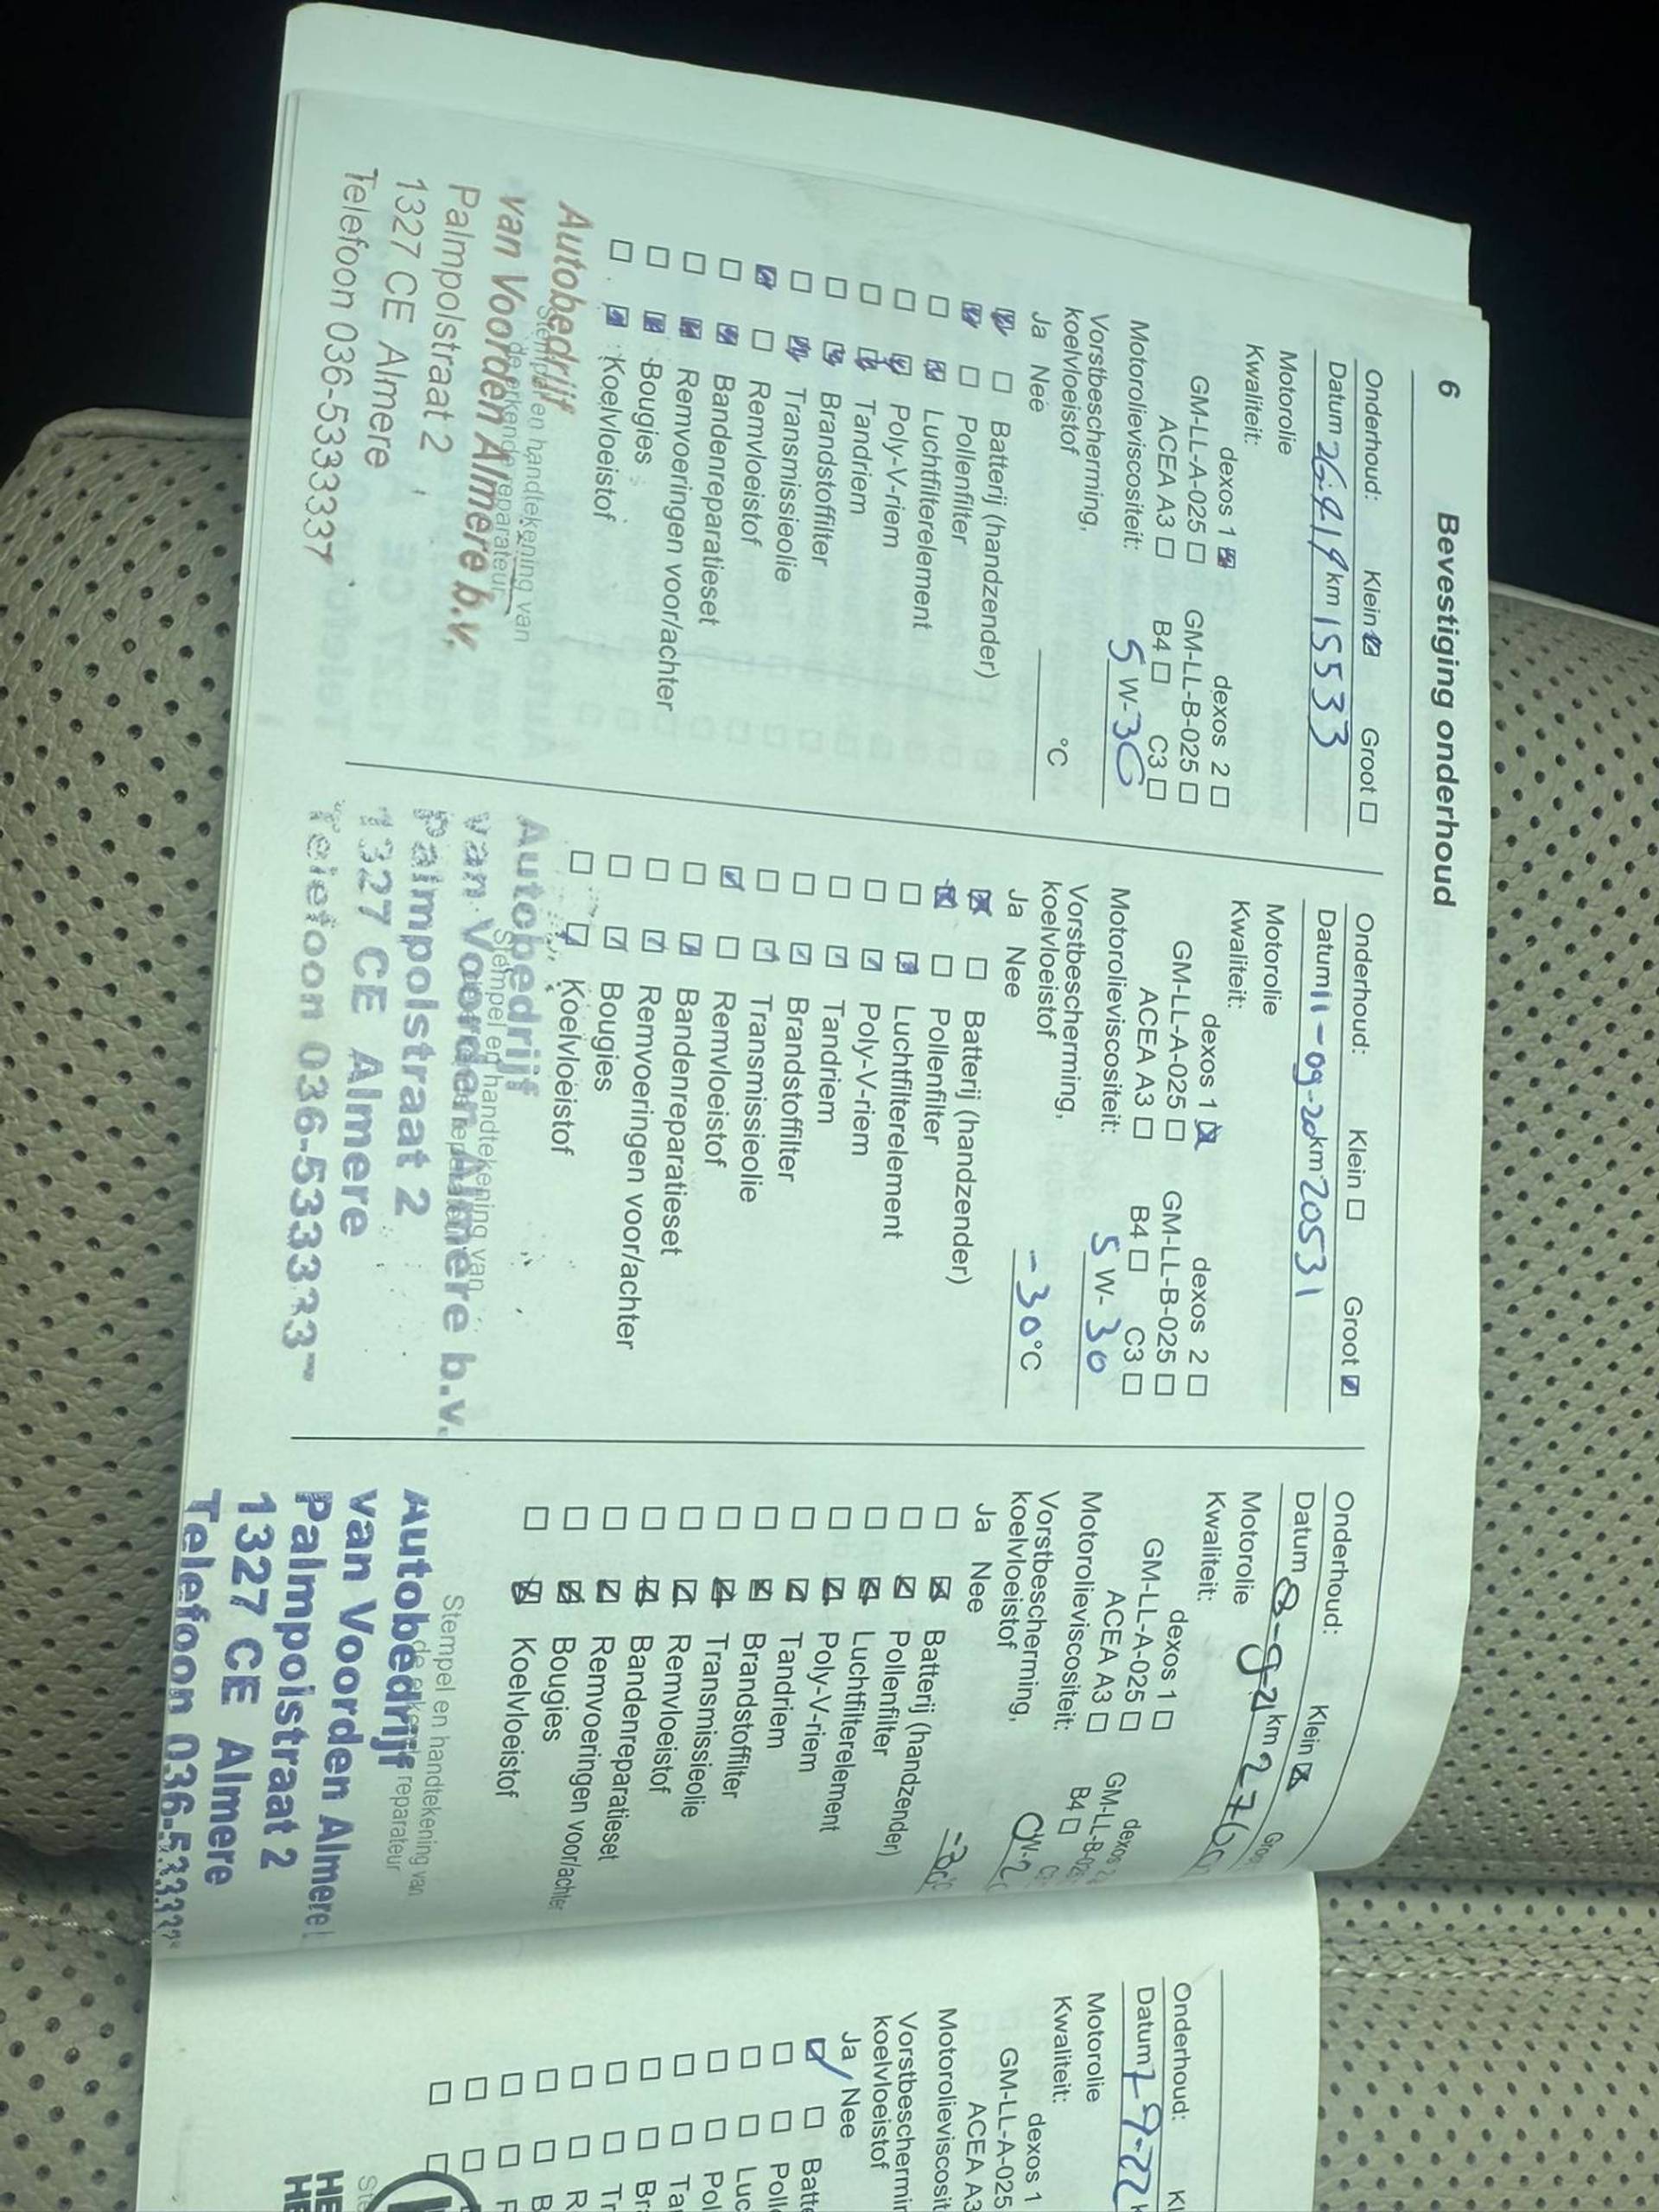 6 Bevestiging onderhoud
Onderhoud: Klein Groot
Datum km 15533
Motorolie
Kwaliteit:
dexos 1 dexos 2
GM-LL-A-025 GM-LL-B-025
ACEA A3 B4 C3
Motorolieviscositeit: 5 W-30
Vorstbescherming,
koelvloeistof °C
Ja Nee
Batterij (handzender)
Pollenfilter
Luchtfilterelement
Poly-V-riem
Tandriem
Brandstoffilter
Transmissieolie
Remvloeistof
Bandenreparatieset
Remvoeringen voor/achter
Bougies
Koelvloeistof
Stempel en handtekening van
de erkende reparateur
Autobedrijf
van Voorden Almere b.v.
Palmpolstraat 2
1327 CE Almere
Telefoon 036-5333337
Onderhoud: Klein Groot
Datum 11-09-20 km 20531
Motorolie
Kwaliteit:
dexos 1 dexos 2
GM-LL-A-025 GM-LL-B-025
ACEA A3 B4 C3
Motorolieviscositeit: 5 W-30
Vorstbescherming,
koelvloeistof -30 °C
Ja Nee
Batterij (handzender)
Pollenfilter
Luchtfilterelement
Poly-V-riem
Tandriem
Brandstoffilter
Transmissieolie
Remvloeistof
Bandenreparatieset
Remvoeringen voor/achter
Bougies
Koelvloeistof
Stempel en handtekening van
Autobedrijf
van Voorden Almere b.v.
Palmpolstraat 2
1327 CE Almere
Telefoon
Onderhoud: Klein
Datum 8-9-21 km
Motorolie
Kwaliteit:
dexos 1 dexos
GM-LL-A-025
ACEA A3 B4
Motorolieviscositeit:
Vorstbescherming,
koelvloeistof
Ja Nee
Batterij (handzender)
Pollenfilter
Luchtfilterelement
Poly-V-riem
Tandriem
Brandstoffilter
Transmissieolie
Remvloeistof
Bandenreparatieset
Remvoeringen voor/achter
Bougies
Koelvloeistof
Stempel en handtekening van
reparateur
Autobedrijf
van Voorden Almere
Palmpolstraat 2
1327 CE Almere
Telefoon
Onderhoud: Kl
Datum 7-9-22
Motorolie
Kwaliteit:
dexos 1
GM-LL-A-025
ACEA A3
Motorolieviscosit
Vorstbeschermin
koelvloeistof
Ja Nee
Batte
Poll
Luc
Pol
Ta
Br
Tr
R
B
HE
HE